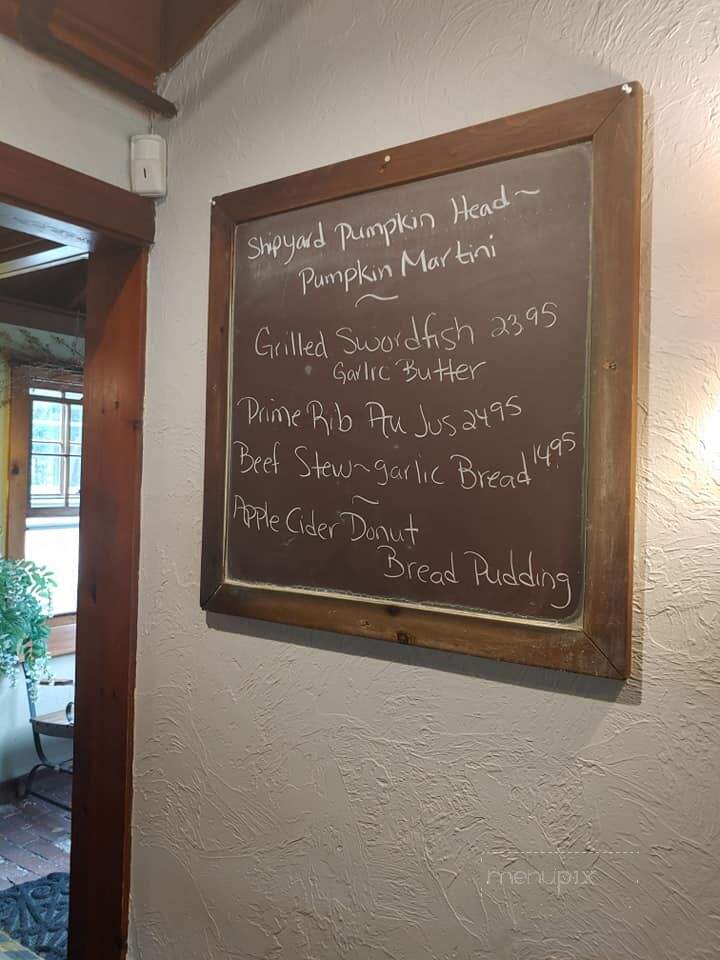 Shipyard Pumpkin Head ~
Pumpkin Martini
~
Grilled Swordfish 2395
Garlic Butter
Prime Rib Au Jus 2495
Beef Stew ~ garlic Bread 14.95
~
Apple Cider Donut
Bread Pudding
menupix